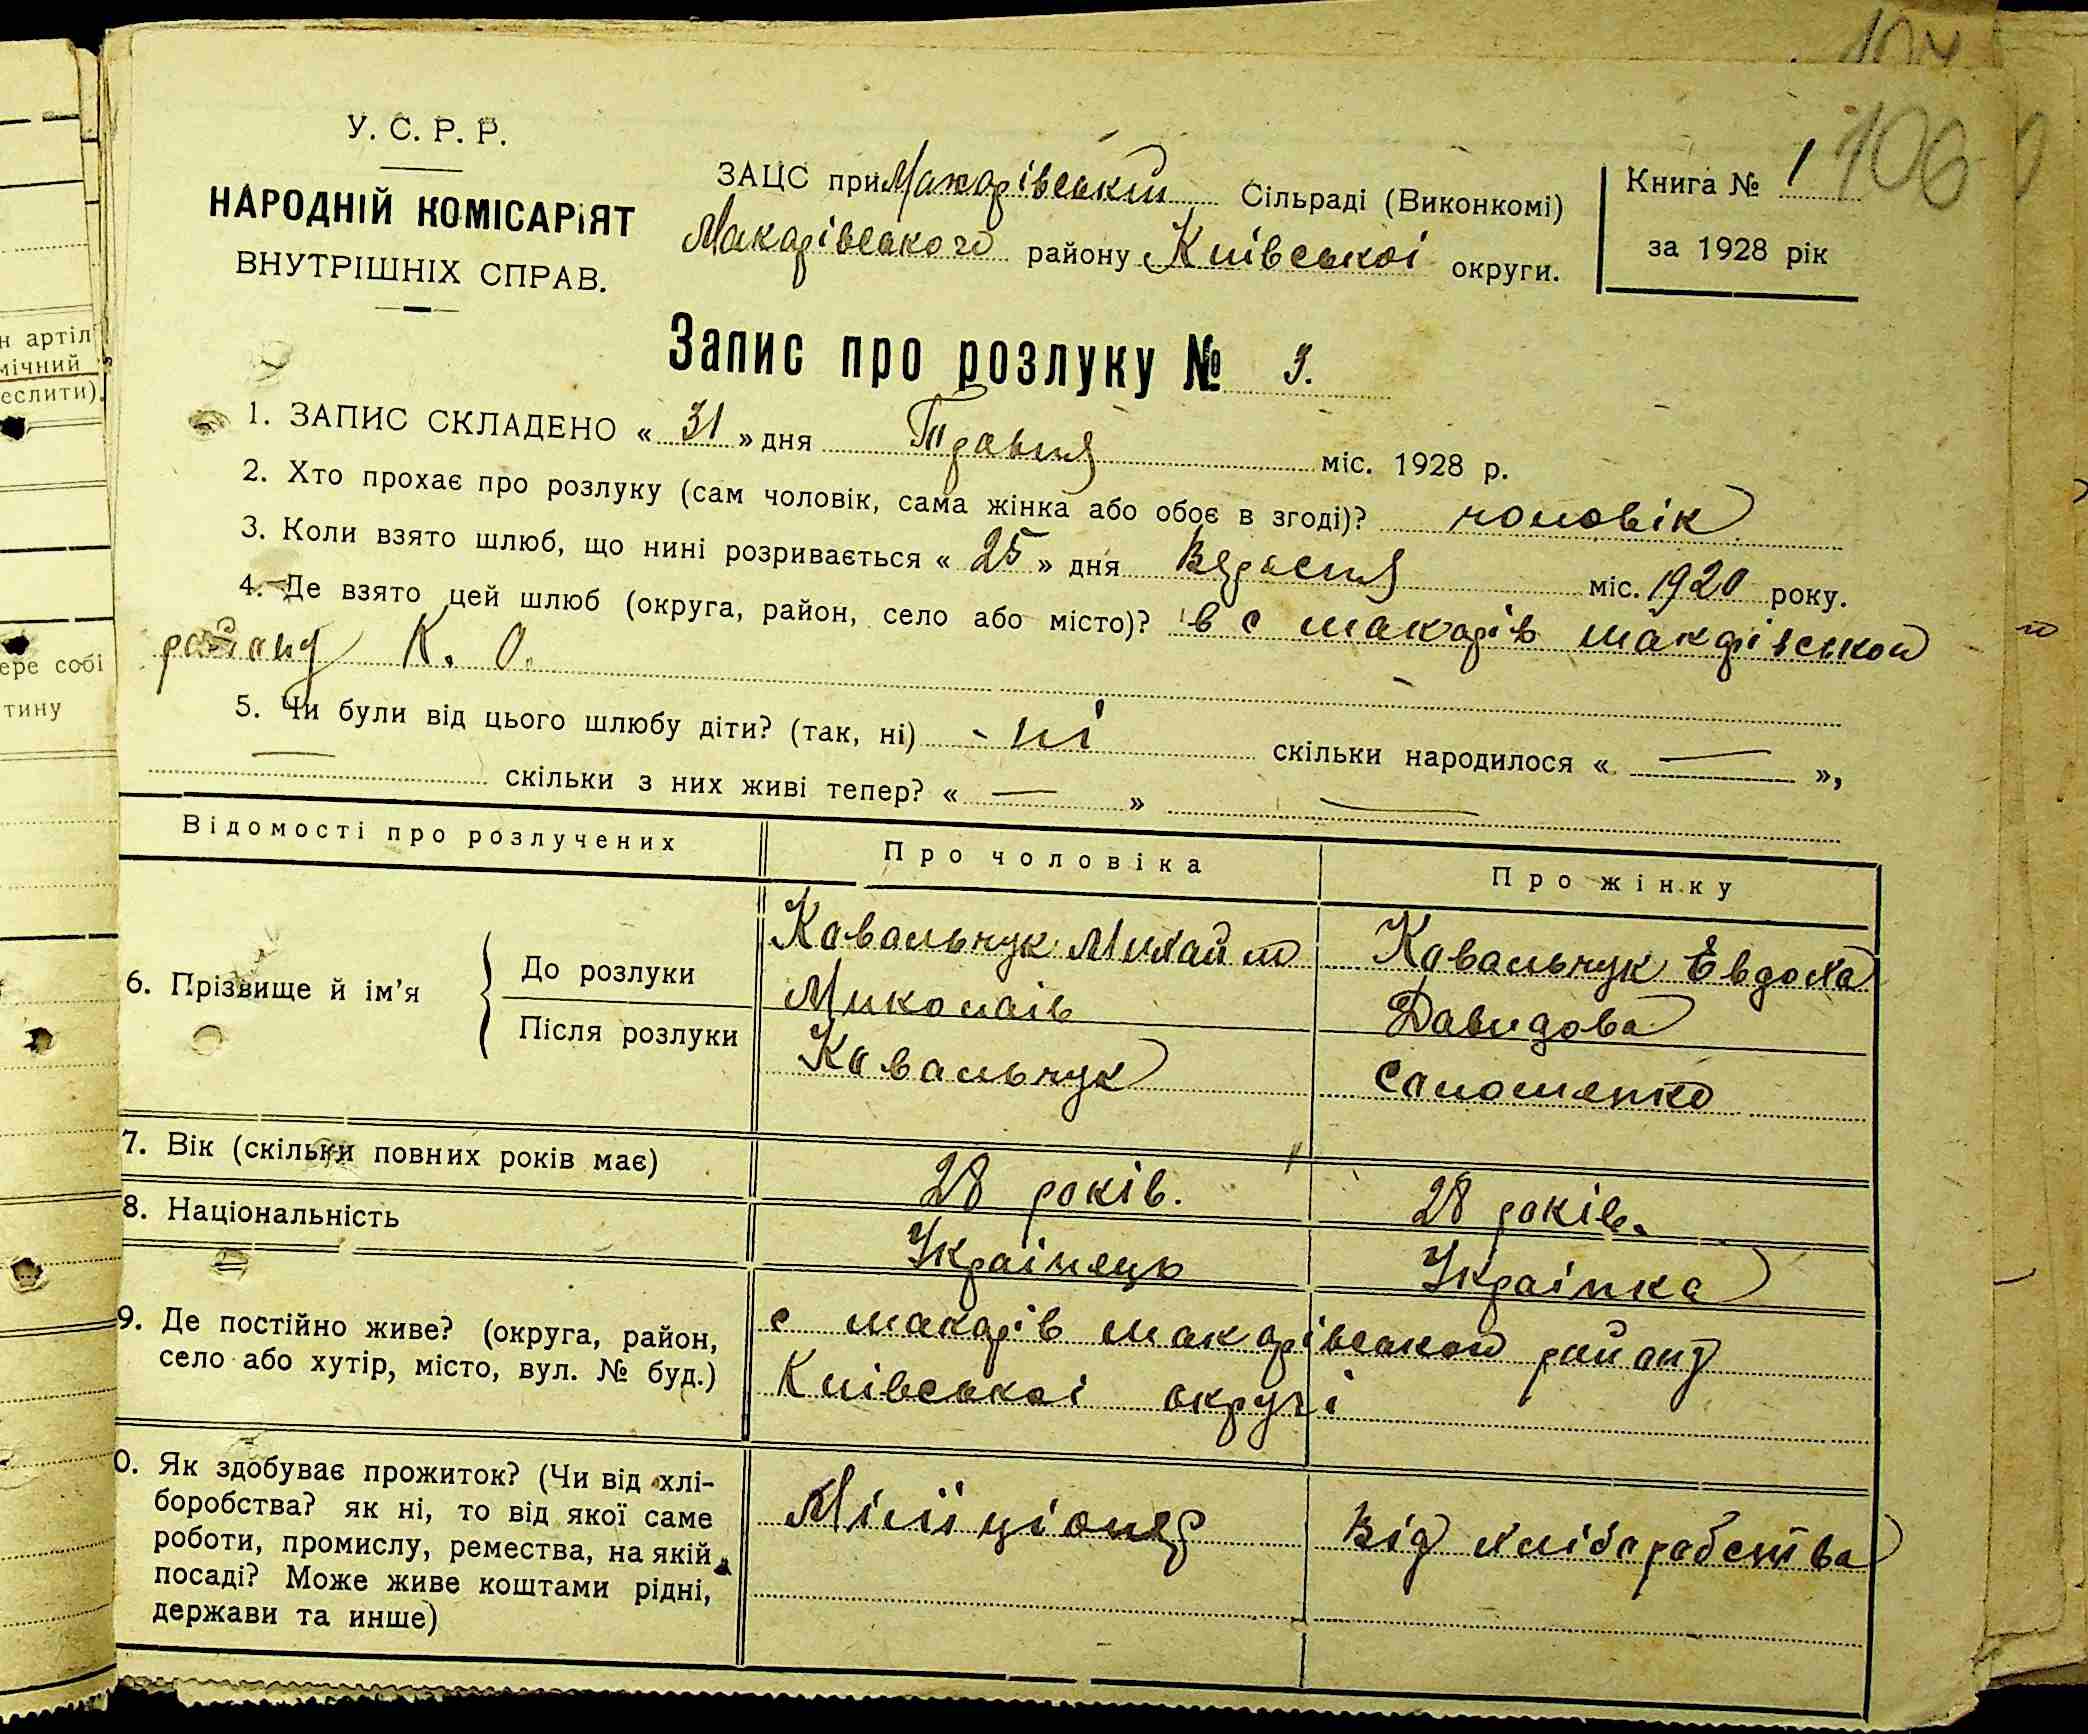 У. С. Р. Р.
НАРОДНІЙ КОМІСАРІЯТ
ВНУТРІШНІХ СПРАВ.
ЗАЦС при Макарівській Сільраді (Виконкомі)
Макарівського району Київської округи.
Книга № 1
за 1928 рік
106
Запис про розлуку № 3.
1. ЗАПИС СКЛАДЕНО « 31 » дня Травня міс. 1928 р.
2. Хто прохає про розлуку (сам чоловік, сама жінка або обоє в згоді)? чоловік
3. Коли взято шлюб, що нині розривається « 25 » дня Вересня міс. 1920 року.
4. Де взято цей шлюб (округа, район, село або місто)? в с макарів макарівського
району К. О.
5. Чи були від цього шлюбу діти? (так, ні) - ні скільки народилося « — »,
— скільки з них живі тепер? « — » —
Відомості про розлучених Про чоловіка Про жінку
6. Прізвище й ім'я
До розлуки Кавальчук Михайло Кавальчук Евдоха
Миколаів Давидова
Після розлуки Кавальчук Саломенко
7. Вік (скільки повних років має) 28 років. 28 років.
8. Національність Украінець Украінка
9. Де постійно живе? (округа, район, село або хутір, місто, вул. № буд.)
с макарів макарівського району
Київської округі
0. Як здобуває прожиток? (Чи від хлі-
боробства? як ні, то від якої саме
роботи, промислу, ремества, на якій
посаді? Може живе коштами рідні,
держави та инше)
Міліціонер Від хліборобства
н артіл
мічний
еслити).
ере собі
тину